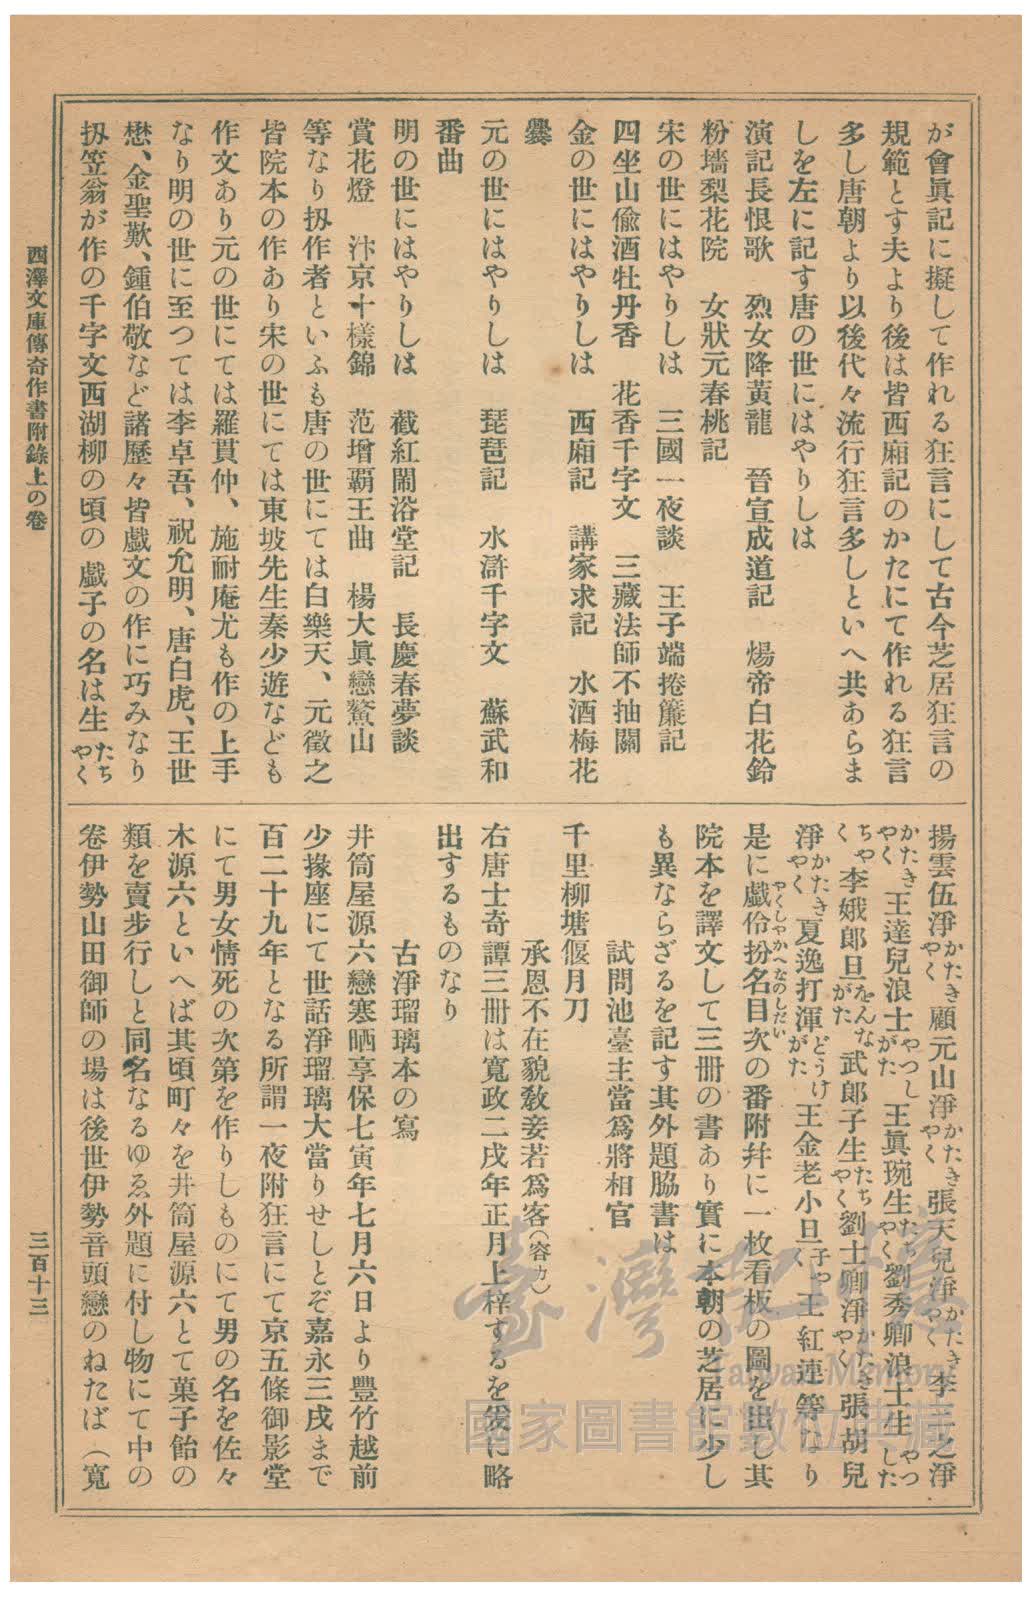 が會眞記に擬して作れる狂言にして古今芝居狂言の
規範とす夫より後は皆西廂記のかたにて作れる狂言
多し唐朝より以後代々流行狂言多しといへ共あらま
しを左に記す唐の世にはやりしは
演記長恨歌　烈女降黃龍　晉宣成道記　煬帝白花鈴
粉墻梨花院　女狀元春桃記
宋の世にはやりしは　三國一夜談　王子端捲簾記
四坐山偸酒牡丹香　花香千字文　三藏法師不抽關
金の世にはやりしは　西廂記　講家求記　水酒梅花
爨
元の世にはやりしは　琵琶記　水滸千字文　蘇武和
番曲
明の世にはやりしは　截紅鬧浴堂記　長慶春夢談
賞花燈　汴京十樣錦　范增覇王曲　楊大眞戀鰲山
等なり扨作者といふも唐の世にては白樂天、元徵之
皆院本の作あり宋の世にては東坡先生秦少遊なども
作文あり元の世にては羅貫仲、施耐庵尤も作の上手
なり明の世に至つては李卓吾、祝允明、唐白虎、王世
懋、金聖歎、鍾伯敬など諸歷々皆戲文の作に巧みなり
扨笠翁が作の千字文西湖柳の頃の戲子の名は生たちやく
揚雲伍淨かたきやく顧元山淨かたきやく張天兒淨かたきやく李一之淨
かたきやく王達兒浪士やつしがた王眞琬生たちやく劉秀卿浪士生やつした
ちやく李娥郎旦をんながた武郎子生たちやく劉士卿淨かたきやく張胡兒
淨かたきやく夏逸打渾どうけがた王金老小旦子やく王紅連等なり
是に戲伶扮名目次やくしやかへなのしだいの番附幷に一枚看板の圖を出し其
院本を譯文して三冊の書あり實に本朝の芝居に少し
も異ならざるを記す其外題脇書は
試問池臺主當爲將相官
千里柳塘偃月刀
承恩不在貌敎妾若爲客（容カ）
右唐士奇譚三冊は寬政二戌年正月上梓するを後に略
出するものなり
古淨瑠璃本の寫
井筒屋源六戀寒晒享保七寅年七月六日より豐竹越前
少掾座にて世話淨瑠璃大當りせしとぞ嘉永三戌まで
百二十九年となる所謂一夜附狂言にて京五條御影堂
にて男女情死の次第を作りしものにて男の名を佐々
木源六といへば其頃町々を井筒屋源六とて菓子飴の
類を賣步行しと同名なるゆゑ外題に付し物にて中の
卷伊勢山田御師の場は後世伊勢音頭戀のねたば（寬
西澤文庫傳奇作書附錄上の卷
三百十三
臺灣記憶
Taiwan Memory
國家圖書館數位典藏